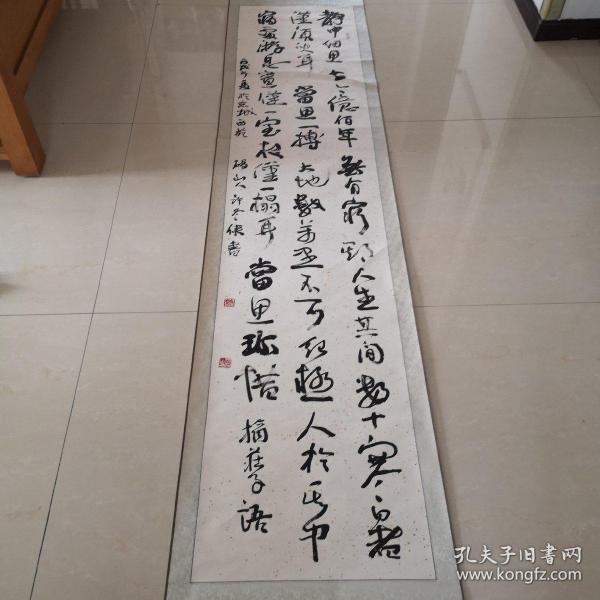 静中细思 古今亿佰年 无有穷期 人生其间 数十寒暑
仅须臾耳 当思一搏 大地数万里 不可纪极 人于其中
寝处游息 昼仅一室 夜仅一榻耳 当思珍惜 摘庄子语
书
孔夫子旧书网
www.kongfz.com